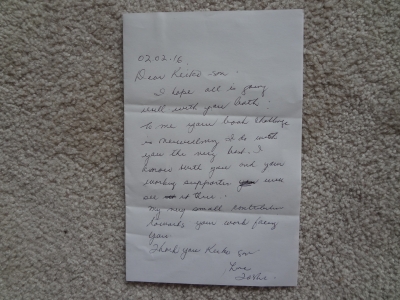 02.02.16.
Dear Keiko san.
I hope all is going
well with you both.
To me your book challenge
is I do with
you the very best. I
know with you and your
working supporter will
see it thru.
My very small contribution
towards your work from
you
Thank you Keiko san.
Love